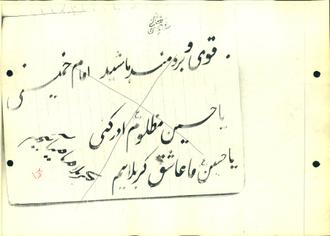 قوی و نیرومند باشید امام خمینی
یا حسین مظلوم ادرکنی
یا حسین ما عاشق کربلاییم
کربلا ما میاییم